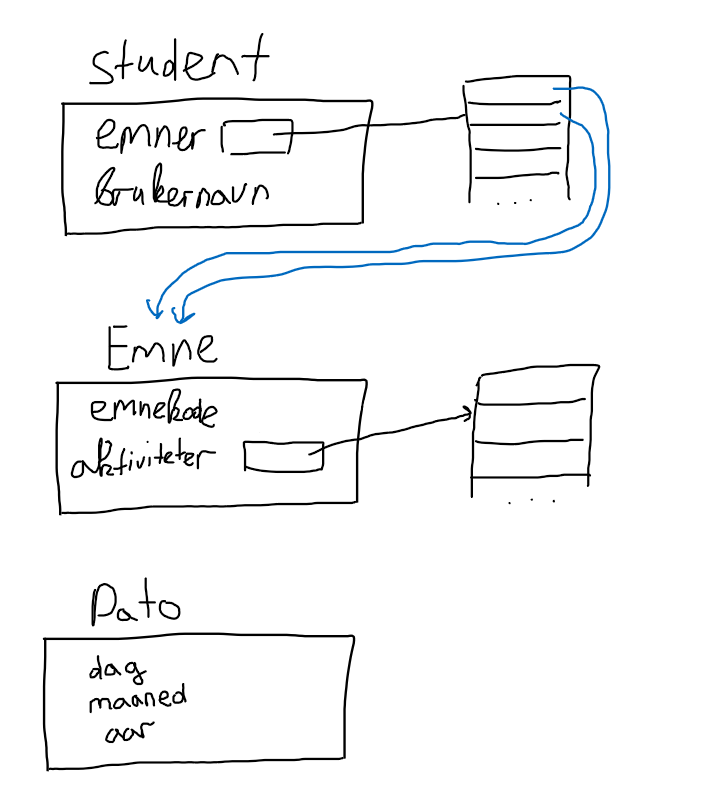 student
emner
brukernavn
...
Emne
emnekode
aktiviteter
...
Dato
dag
maaned
aar